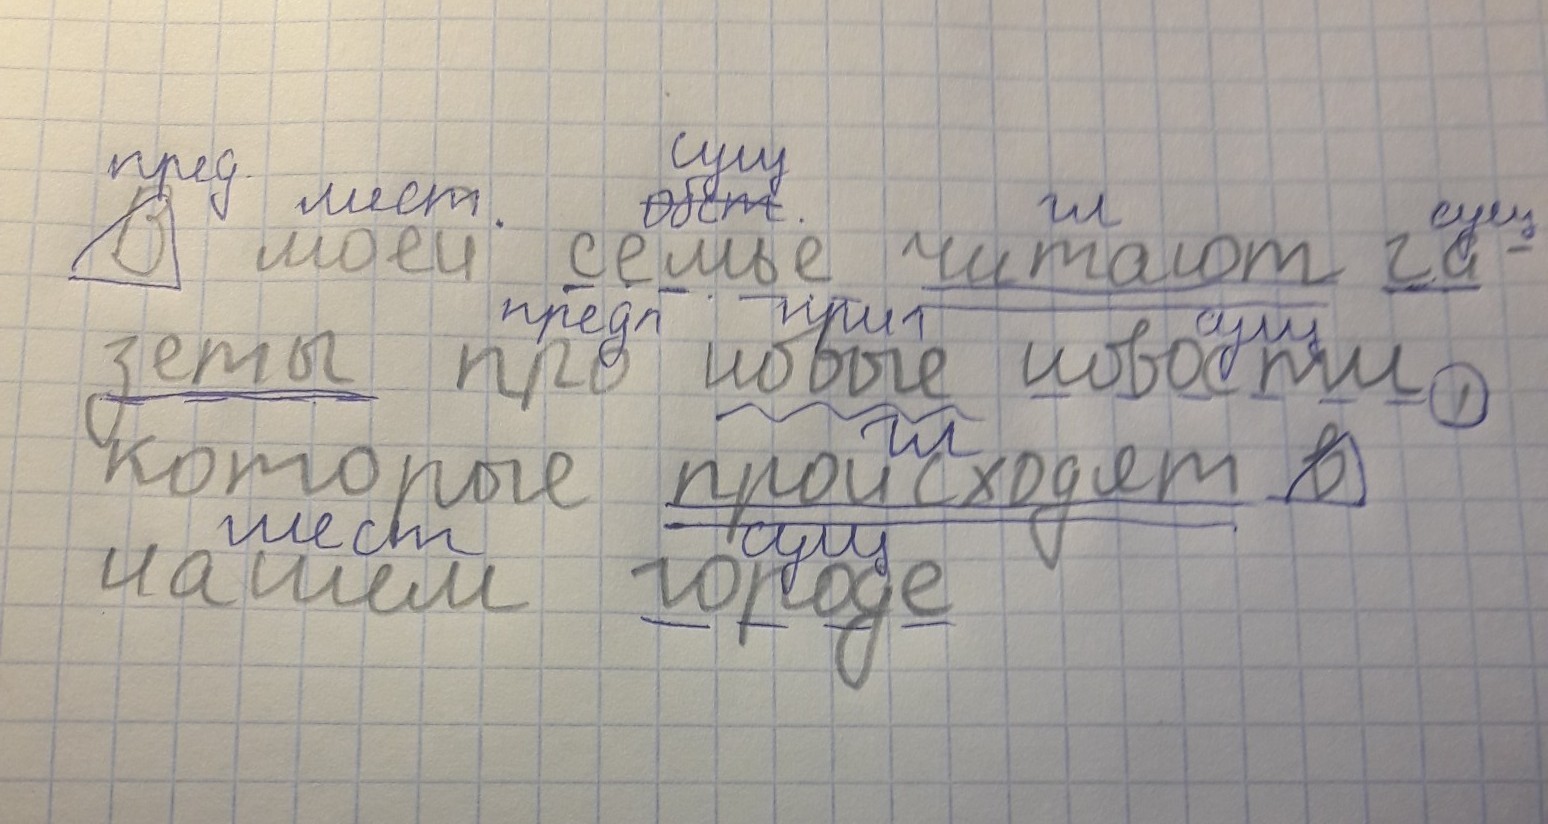 пред. сущ
мест. обст. гл сущ
В моей семье читают га-
предл прил сущ
зеты про новые новости,
гл
которые происходят в
мест сущ
нашем городе